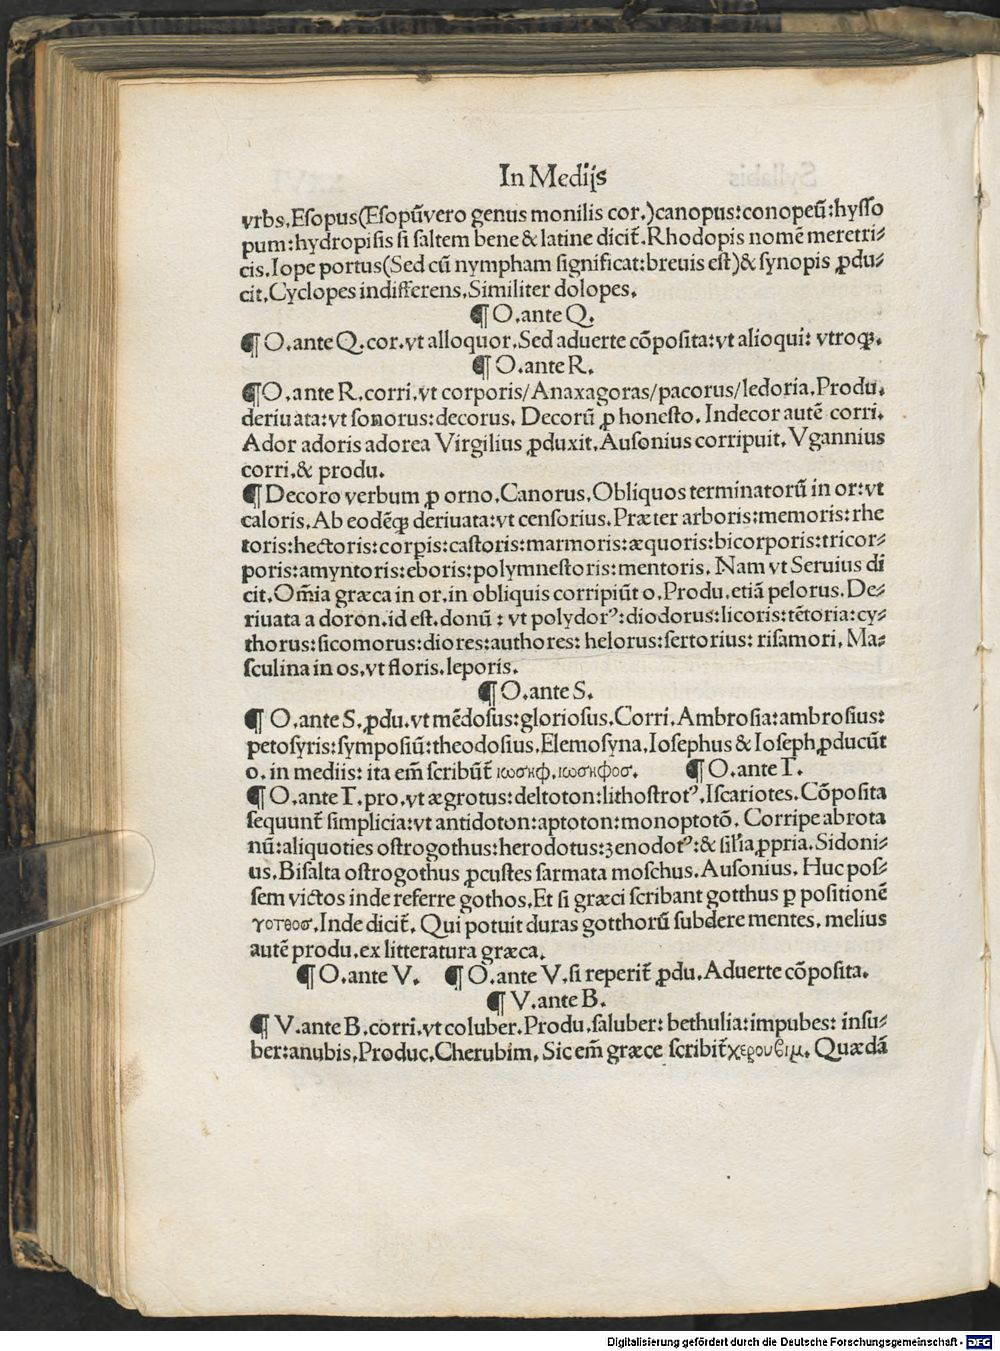 In Medijs
vrbs. Esopus (Esopũ vero genus monilis cor.) canopus: conopeũ: hysso
pum: hydropisis si saltem bene & latine dicit᷑. Rhodopis nomẽ meretri⸗
cis. Iope portus (Sed cũ nympham significat: breuis est) & synopis ꝓdu⸗
cit. Cyclopes indifferens. Similiter dolopes.
¶ O. ante Q.
¶ O. ante Q. cor. vt alloquor. Sed aduerte cõposita: vt alioqui: vtroqꝫ.
¶ O. ante R.
¶ O. ante R. corri. vt corporis/ Anaxagoras/ pacorus/ ledoria. Produ.
deriuata: vt sonorus: decorus. Decorũ ꝓ honesto. Indecor autẽ corri.
Ador adoris adorea Virgilius ꝓduxit. Ausonius corripuit. Vgannius
corri. & produ.
¶ Decoro verbum ꝓ orno. Canorus. Obliquos terminatorũ in or: vt
caloris. Ab eodẽqꝫ deriuata: vt censorius. Præter arboris: memoris: rhe
toris: hectoris: corꝑis: castoris: marmoris: æquoris: bicorporis: tricor⸗
poris: amyntoris: eboris: polymnestoris: mentoris. Nam vt Seruius di
cit. Om̃ia græca in or. in obliquis corripiũt o. Produ. etiã pelorus. De⸗
riuata a doron. id est. donũ: vt polydorꝰ: diodorus: licoris: tẽtoria: cy⸗
thorus: sicomorus: diores: authores: helorus: sertorius: risamori. Ma⸗
sculina in os. vt floris. leporis.
¶ O. ante S.
¶ O. ante S. ꝓdu. vt mẽdosus: gloriosus. Corri. Ambrosia: ambrosius:
petosyris: symposiũ: theodosius. Elemosyna. Iosephus & Ioseph ꝓducũt
o. in mediis: ita em̃ scribũt᷑ ιωσηφ. ιωσηφοσ. ¶ O. ante T.
¶ O. ante T. pro. vt ægrotus: deltoton: lithostrotꝰ. Iscariotes. Cõposita
sequunt᷑ simplicia: vt antidoton: aptoton: monoptotõ. Corripe abrota
nũ: aliquoties ostrogothus: herodotus: zenodotꝰ: & sil̃ia ꝓpria. Sidoni⸗
us. Bisalta ostrogothus ꝓcustes sarmata moschus. Ausonius. Huc pos⸗
sem victos inde referre gothos. Et si græci scribant gotthus ꝑ positionẽ
γοτθοσ. Inde dicit᷑. Qui potuit duras gotthorũ subdere mentes. melius
autẽ produ. ex litteratura græca.
¶ O. ante V. ¶ O. ante V. si reperit᷑ ꝓdu. Aduerte cõposita.
¶ V. ante B.
¶ V. ante B. corri. vt coluber. Produ. saluber: bethulia: impubes: insu⸗
ber: anubis. Produc. Cherubim. Sic em̃ græce scribit᷑ χερουβιμ. Quædã
Digitalisierung gefördert durch die Deutsche Forschungsgemeinschaft - DFG